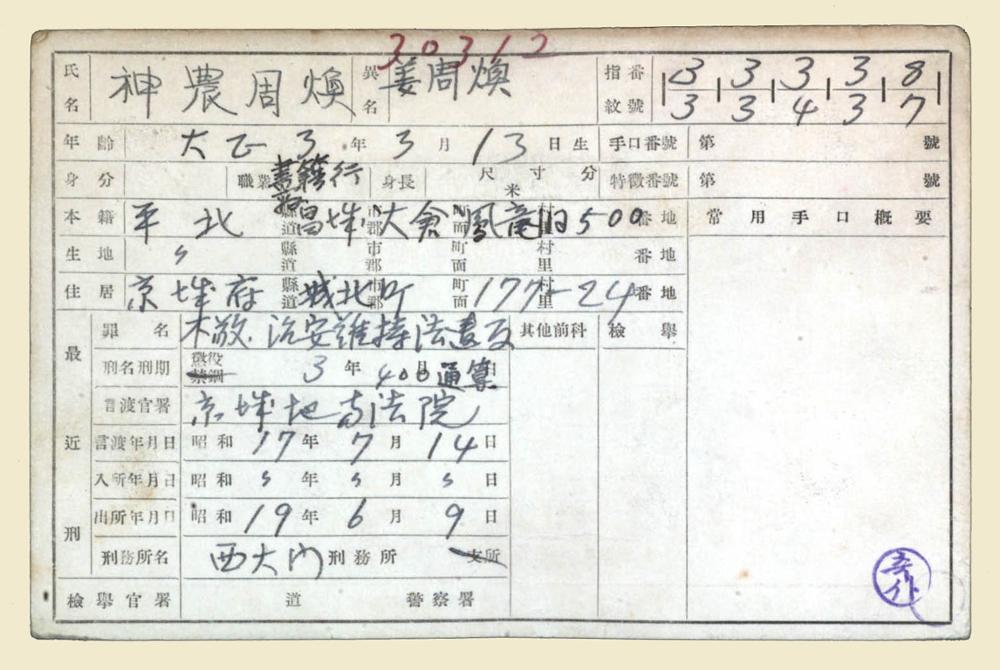 30312
氏名 神農周煥 異名 姜周煥 指紋番號 3 3 3 3 8
3 3 4 3 7
年齡 大正3年3月13日生 手口番號 第 號
身分 職業 書籍行 身長 尺寸分 米 特徵番號 第 號
本籍 平北 縣道 昌城 市郡 大倉 町面 村里 500 番地 常用手口概要
生地 〃 縣道 市郡 町面 村里 番地
住居 京城府 縣道 城北町 市郡 町面 村里 177-24 番地
最近刑
罪名 不敬、治安維持法違反 其他前科 檢擧
刑名刑期 懲役 禁錮 3年 月 日 400通算
言渡官署 京城地方法院
言渡年月日 昭和17年7月14日
入所年月日 昭和〃年〃月〃日
出所年月日 昭和19年6月9日
刑務所名 西大門刑務所 支所
檢擧官署 道 警察署